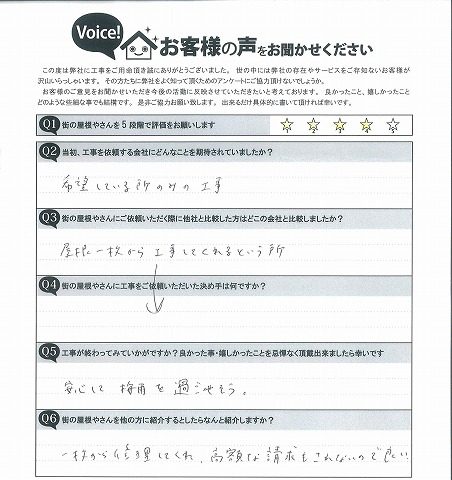 Voice!
お客様の声をお聞かせください
この度は弊社に工事をご用命頂き誠にありがとうございました。 世の中には弊社の存在やサービスをご存知ないお客様が
沢山いらっしゃいます。 その方たちに弊社をよく知って頂くためのアンケートにご協力頂けないでしょうか。
お客様のご意見をお聞かせいただき今後の活動に反映させていただきたいと考えております。 良かったこと、嬉しかったこと
どのような些細な事でも結構です。 是非ご協力お願い致します。 出来るだけ具体的に書いて頂ければ幸いです。
Q1 街の屋根やさんを5段階で評価をお願いします ☆ ☆ ☆ ☆ ☆
Q2 当初、工事を依頼する会社にどんなことを期待されていましたか？
希望している所のみの工事
Q3 街の屋根やさんにご依頼いただく際に他社と比較した方はどこの会社と比較しましたか？
屋根一枚から工事してくれるという所
Q4 街の屋根やさんに工事をご依頼いただいた決め手は何ですか？
Q5 工事が終わってみていかがですか？良かった事・嬉しかったことを忌憚なく頂戴出来ましたら幸いです
安心して梅雨を過ごせそう。
Q6 街の屋根やさんを他の方に紹介するとしたらなんと紹介しますか？
一枚から修理してくれ、高額な請求もされないので良い